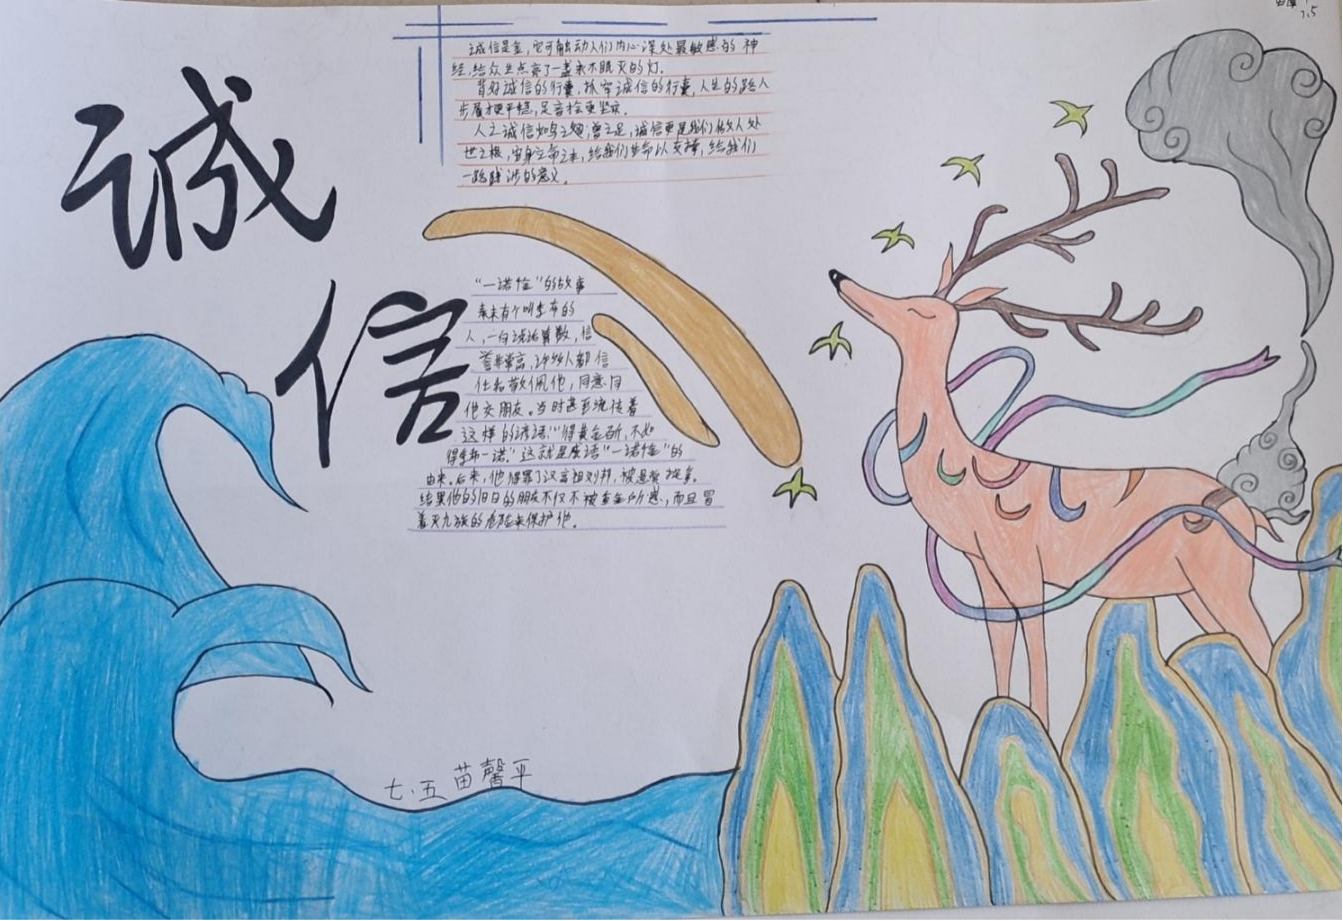 诚信
诚信是金，它可触动人们内心深处最敏感的神
经，给众生点亮了一盏永不熄灭的灯。
背好诚信的行囊，抓牢诚信的行囊，人生的路人
步履才更平稳，足音才会更坚实。
人之诚信如鸟之翅，兽之足，诚信更是我们做人处
世之根，安身立命之本，给我们生命以支撑，给我们
一路跋涉的意义。
“一诺千金”的故事
秦末有个叫季布的
人，一向说话算数，信
誉非常高，许多人都信
任和敬佩他，同意同
他交朋友。当时甚至流传着
这样的谚语：“得黄金百斤，不如
得季布一诺。”这就是成语“一诺千金”的
由来。后来，他得罪了汉高祖刘邦，被悬赏捉拿。
结果他的旧日的朋友不仅不被重金所惑，而且冒
着灭九族的危险来保护他。
七.五 苗馨平
7.5